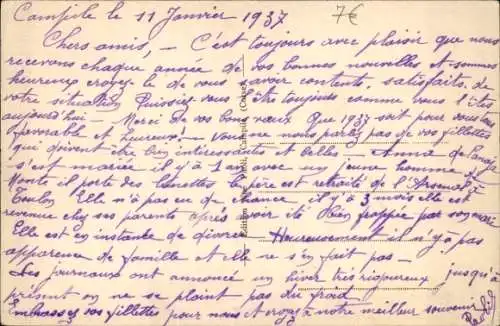 Campile le 11 Janvier 1937
7€
Chers amis, – C'est toujours avec plaisir que nous
recevons chaque année de vos bonnes nouvelles et sommes
heureux croyez-le de vous savoir contents, satisfaits, de
votre situation Puissiez vous l'être toujours comme vous l'êtes
aujourd'hui – Merci de vos bons vœux. Que 1937 soit pour vous tous
favorable et heureux! – Vous ne nous parlez pas de vos fillettes
qui doivent être bien intéressantes et belles – Anna
s'est mariée il y a 1 an avec un jeune homme de
Monte il porte des lunettes le père est retraité de l'Arsenal à
Toulon Elle n'a pas eu de chance, il y a 3 mois elle est
revenue chez ses parents après avoir été bien frappée par son mari
Elle est en instance de divorce Heureusement il n'y a pas
apparence de famille et elle ne s'en fait pas –
Les journaux ont annoncé un hiver très rigoureux jusqu'à
présent on ne se plaint pas du froid
Embrassez vos fillettes pour nous et croyez à notre meilleur souvenir